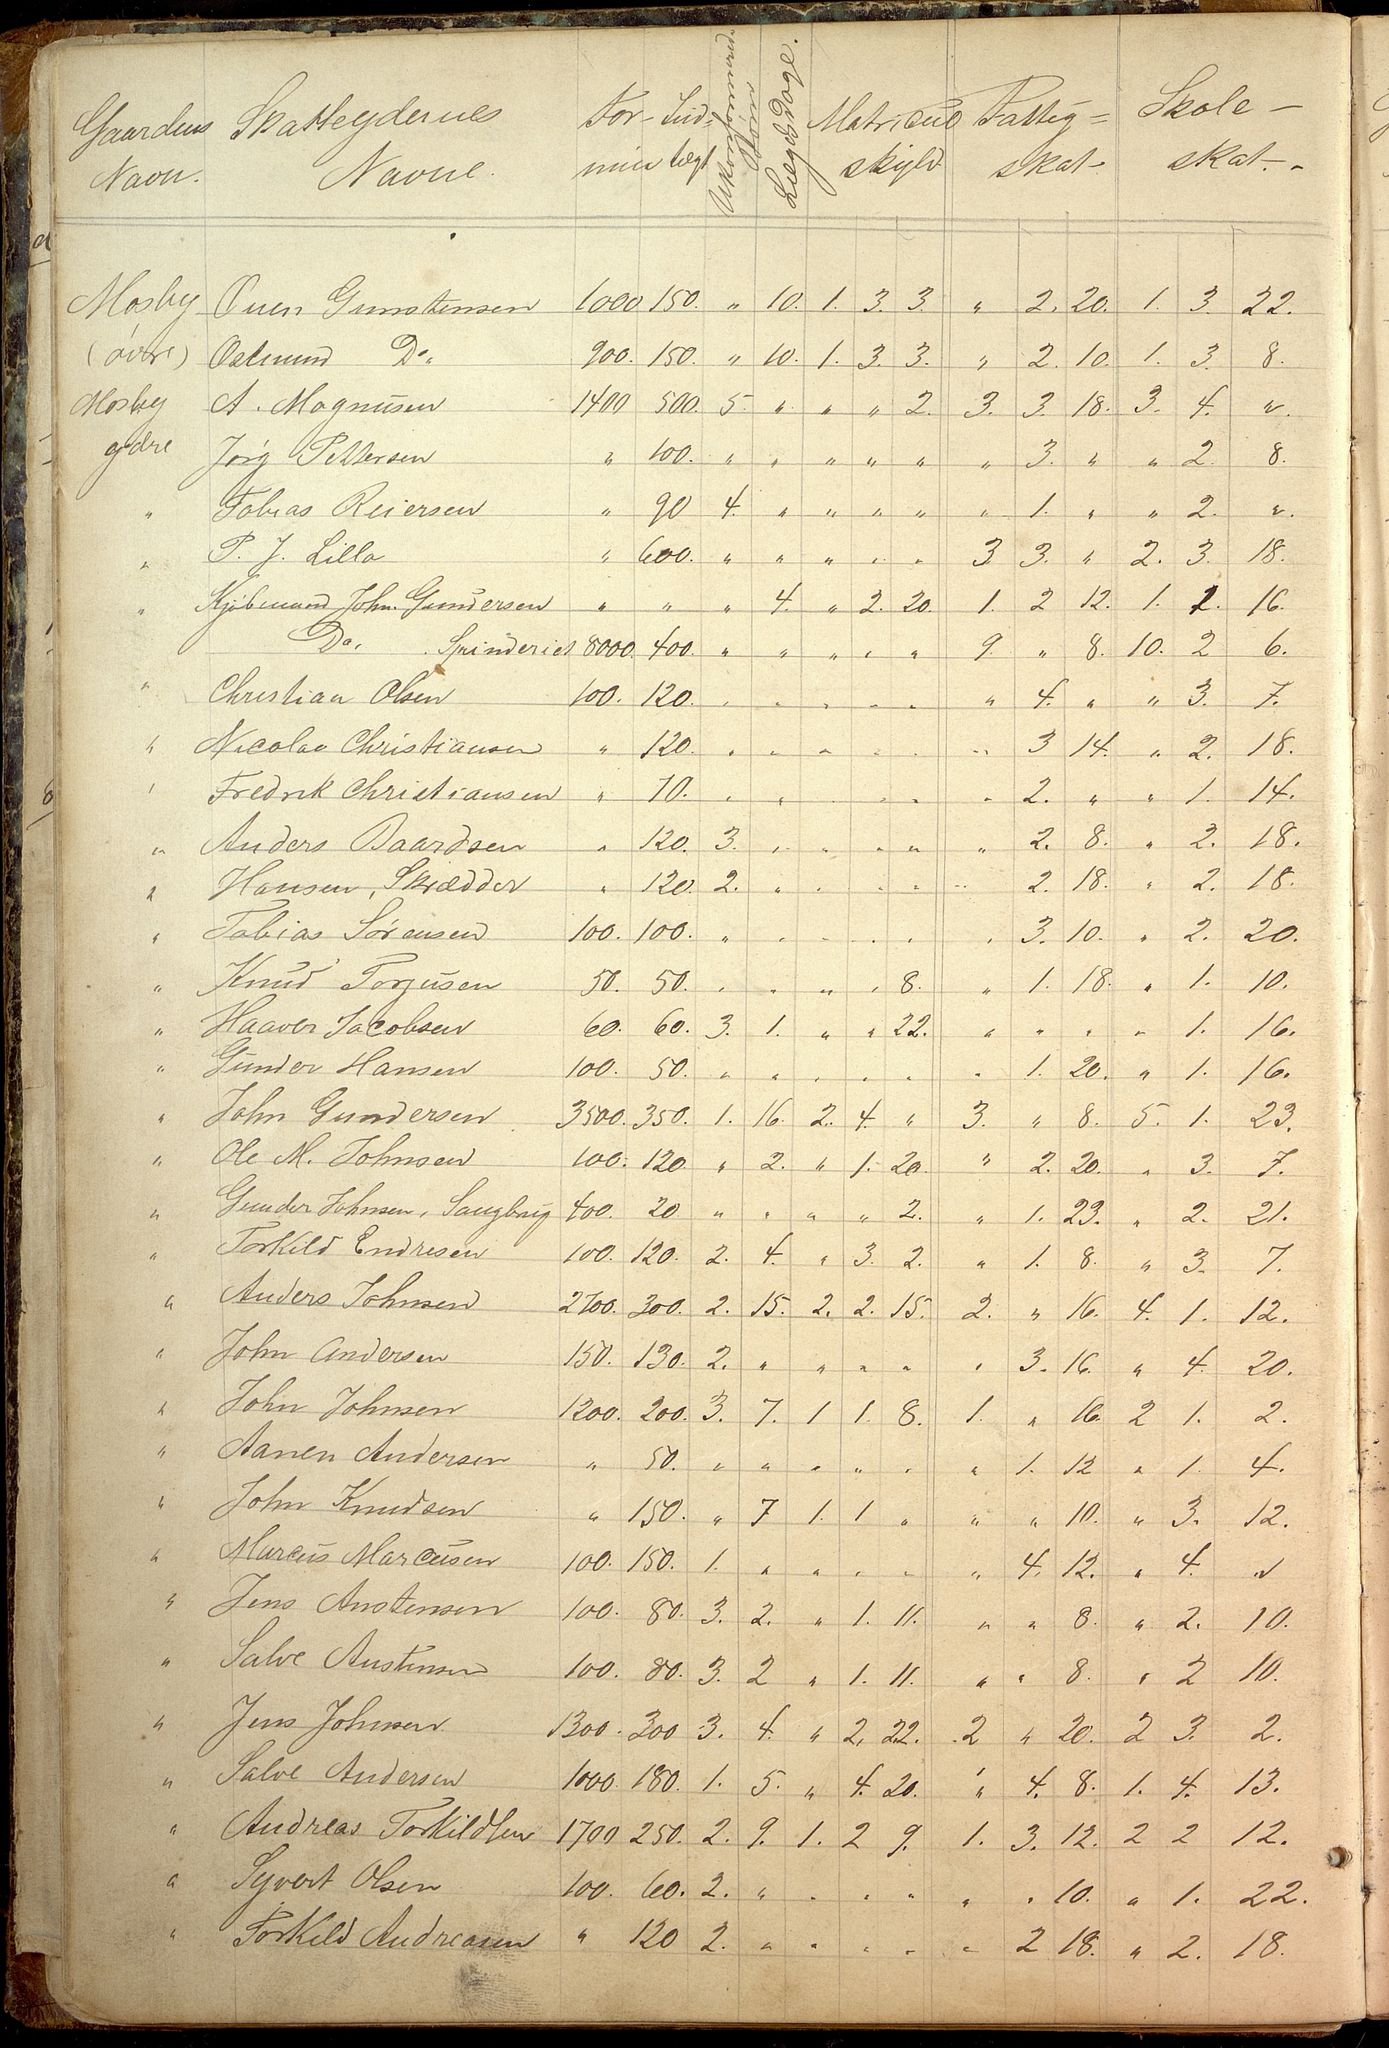 Gaardens Navn. | Skatteydernes Navne. | Formue | Indtægt | Ukonfirmerede Børn | Lægds Dage. | Matricul skyld | Fattig= skat- | Skole- skat.-
Mosby | Ouen Gunstensen | 1000 | 150. | " | 10. | 1. | 3. | 3. | " | 2. | 20. | 1. | 3. | 22.
(øvre) | Osmund Do. | 900. | 150. | " | 10. | 1. | 3. | 3. | " | 2. | 10. | 1. | 3. | 8.
Mosby | A. Magnusen | 1400 | 500. | 5. | " | " | " | 2. | 3. | 3. | 18. | 3. | 4. | ".
ydre | Jørg Pettersen | " | 100. | " | " | " | " | " | " | 3. | " | " | 2. | 8.
" | Tobias Reiersen | " | 90 | 4. | " | " | " | " | " | 1. | " | " | 2. | ".
" | P. J. Lilla | " | 600. | " | " | " | " | " | 3 | 3. | " | 2. | 3. | 18.
" | Kjøbmand John Gundersen | " | " | " | 4. | " | 2. | 20. | 1. | 2 | 12. | 1. | 2. | 16.
Do. Spinderiet | 8000. | 400. | " | " | " | " | " | 9. | " | 8. | 10. | 2 | 6.
" | Christian Olsen | 100. | 120. | " | " | " | " | " | " | 4. | " | " | 3. | 7.
" | Nicolae Christiansen | " | 120. | " | " | " | " | " | " | 3 | 14. | " | 2. | 18.
" | Fredrik Christiansen | " | 70. | " | " | " | " | " | " | 2. | " | " | 1. | 14.
" | Anders Baardsen | " | 120. | 3. | " | " | " | " | " | 2. | 8. | " | 2. | 18.
" | Hansen, Skrædder | " | 120. | 2. | " | " | " | " | " | 2. | 18. | " | 2. | 18.
" | Tobias Sørensen | 100. | 100. | " | " | " | " | " | " | 3. | 10. | " | 2. | 20.
" | Knud Torjusen | 50. | 50. | " | " | " | " | 8. | " | 1. | 18. | " | 1. | 10.
" | Haaver Jacobsen | 60. | 60. | 3. | 1. | " | " | 22. | " | " | " | " | 1. | 16.
" | Gunder Hansen | 100. | 50. | " | " | " | " | " | " | 1. | 20. | " | 1. | 16.
" | John Gundersen | 3500. | 350. | 1. | 16. | 2. | 4. | " | 3. | " | 8. | 5. | 1. | 23.
" | Ole M. Johnsen | 100. | 120 | " | 2. | " | 1. | 20. | " | 2. | 20. | " | 3. | 7.
" | Gunder Johnsen, Saugbrug | 400. | 20 | " | " | " | " | 2. | " | 1. | 23. | " | 2. | 21.
" | Torkild Endresen | 100. | 120. | 2. | 4. | " | 3. | 2. | " | 1. | 8. | " | 3. | 7.
" | Anders Johnsen | 2700. | 300. | 2. | 15. | 2. | 2. | 15. | 2. | " | 16. | 4. | 1. | 12.
" | John Andersen | 150. | 130. | 2. | " | " | " | " | " | 3. | 16. | " | 4. | 20.
" | John Johnsen | 1200. | 200. | 3. | 7. | 1 | 1. | 8. | 1. | " | 16. | 2 | 1. | 2.
" | Aanen Andersen | " | 50. | " | " | " | " | " | " | 1. | 12 | " | 1. | 4.
" | John Knudsen | " | 150. | " | 7 | 1. | 1 | " | " | " | 10. | " | 3. | 12.
" | Marcus Marcusen | 100. | 150. | 1. | " | " | " | " | " | 4. | 12. | " | 4. | "
" | Jens Anstensen | 100. | 80. | 3. | 2. | " | 1. | 11. | " | " | 8. | " | 2. | 10.
" | Salve Austensen | 100. | 80. | 3. | 2 | " | 1. | 11. | " | " | 8. | " | 2 | 10.
" | Jens Johnsen | 1300. | 300 | 3. | 4. | " | 2. | 22. | 2 | " | 20. | 2 | 3. | 2.
" | Salve Andersen | 1000. | 180. | 1. | 5. | " | 4. | 20. | " | 4. | 8. | 1. | 4. | 13.
" | Andreas Torkildsen | 1700 | 250. | 2. | 9. | 1. | 2 | 9. | 1. | 3. | 12. | 2 | 2 | 12.
" | Syvert Olsen | 100. | 60. | 2. | " | " | " | " | " | " | 10. | " | 1. | 22.
" | Torkild Andreasen | " | 120 | 2. | " | " | " | " | " | 2 | 18. | " | 2. | 18.